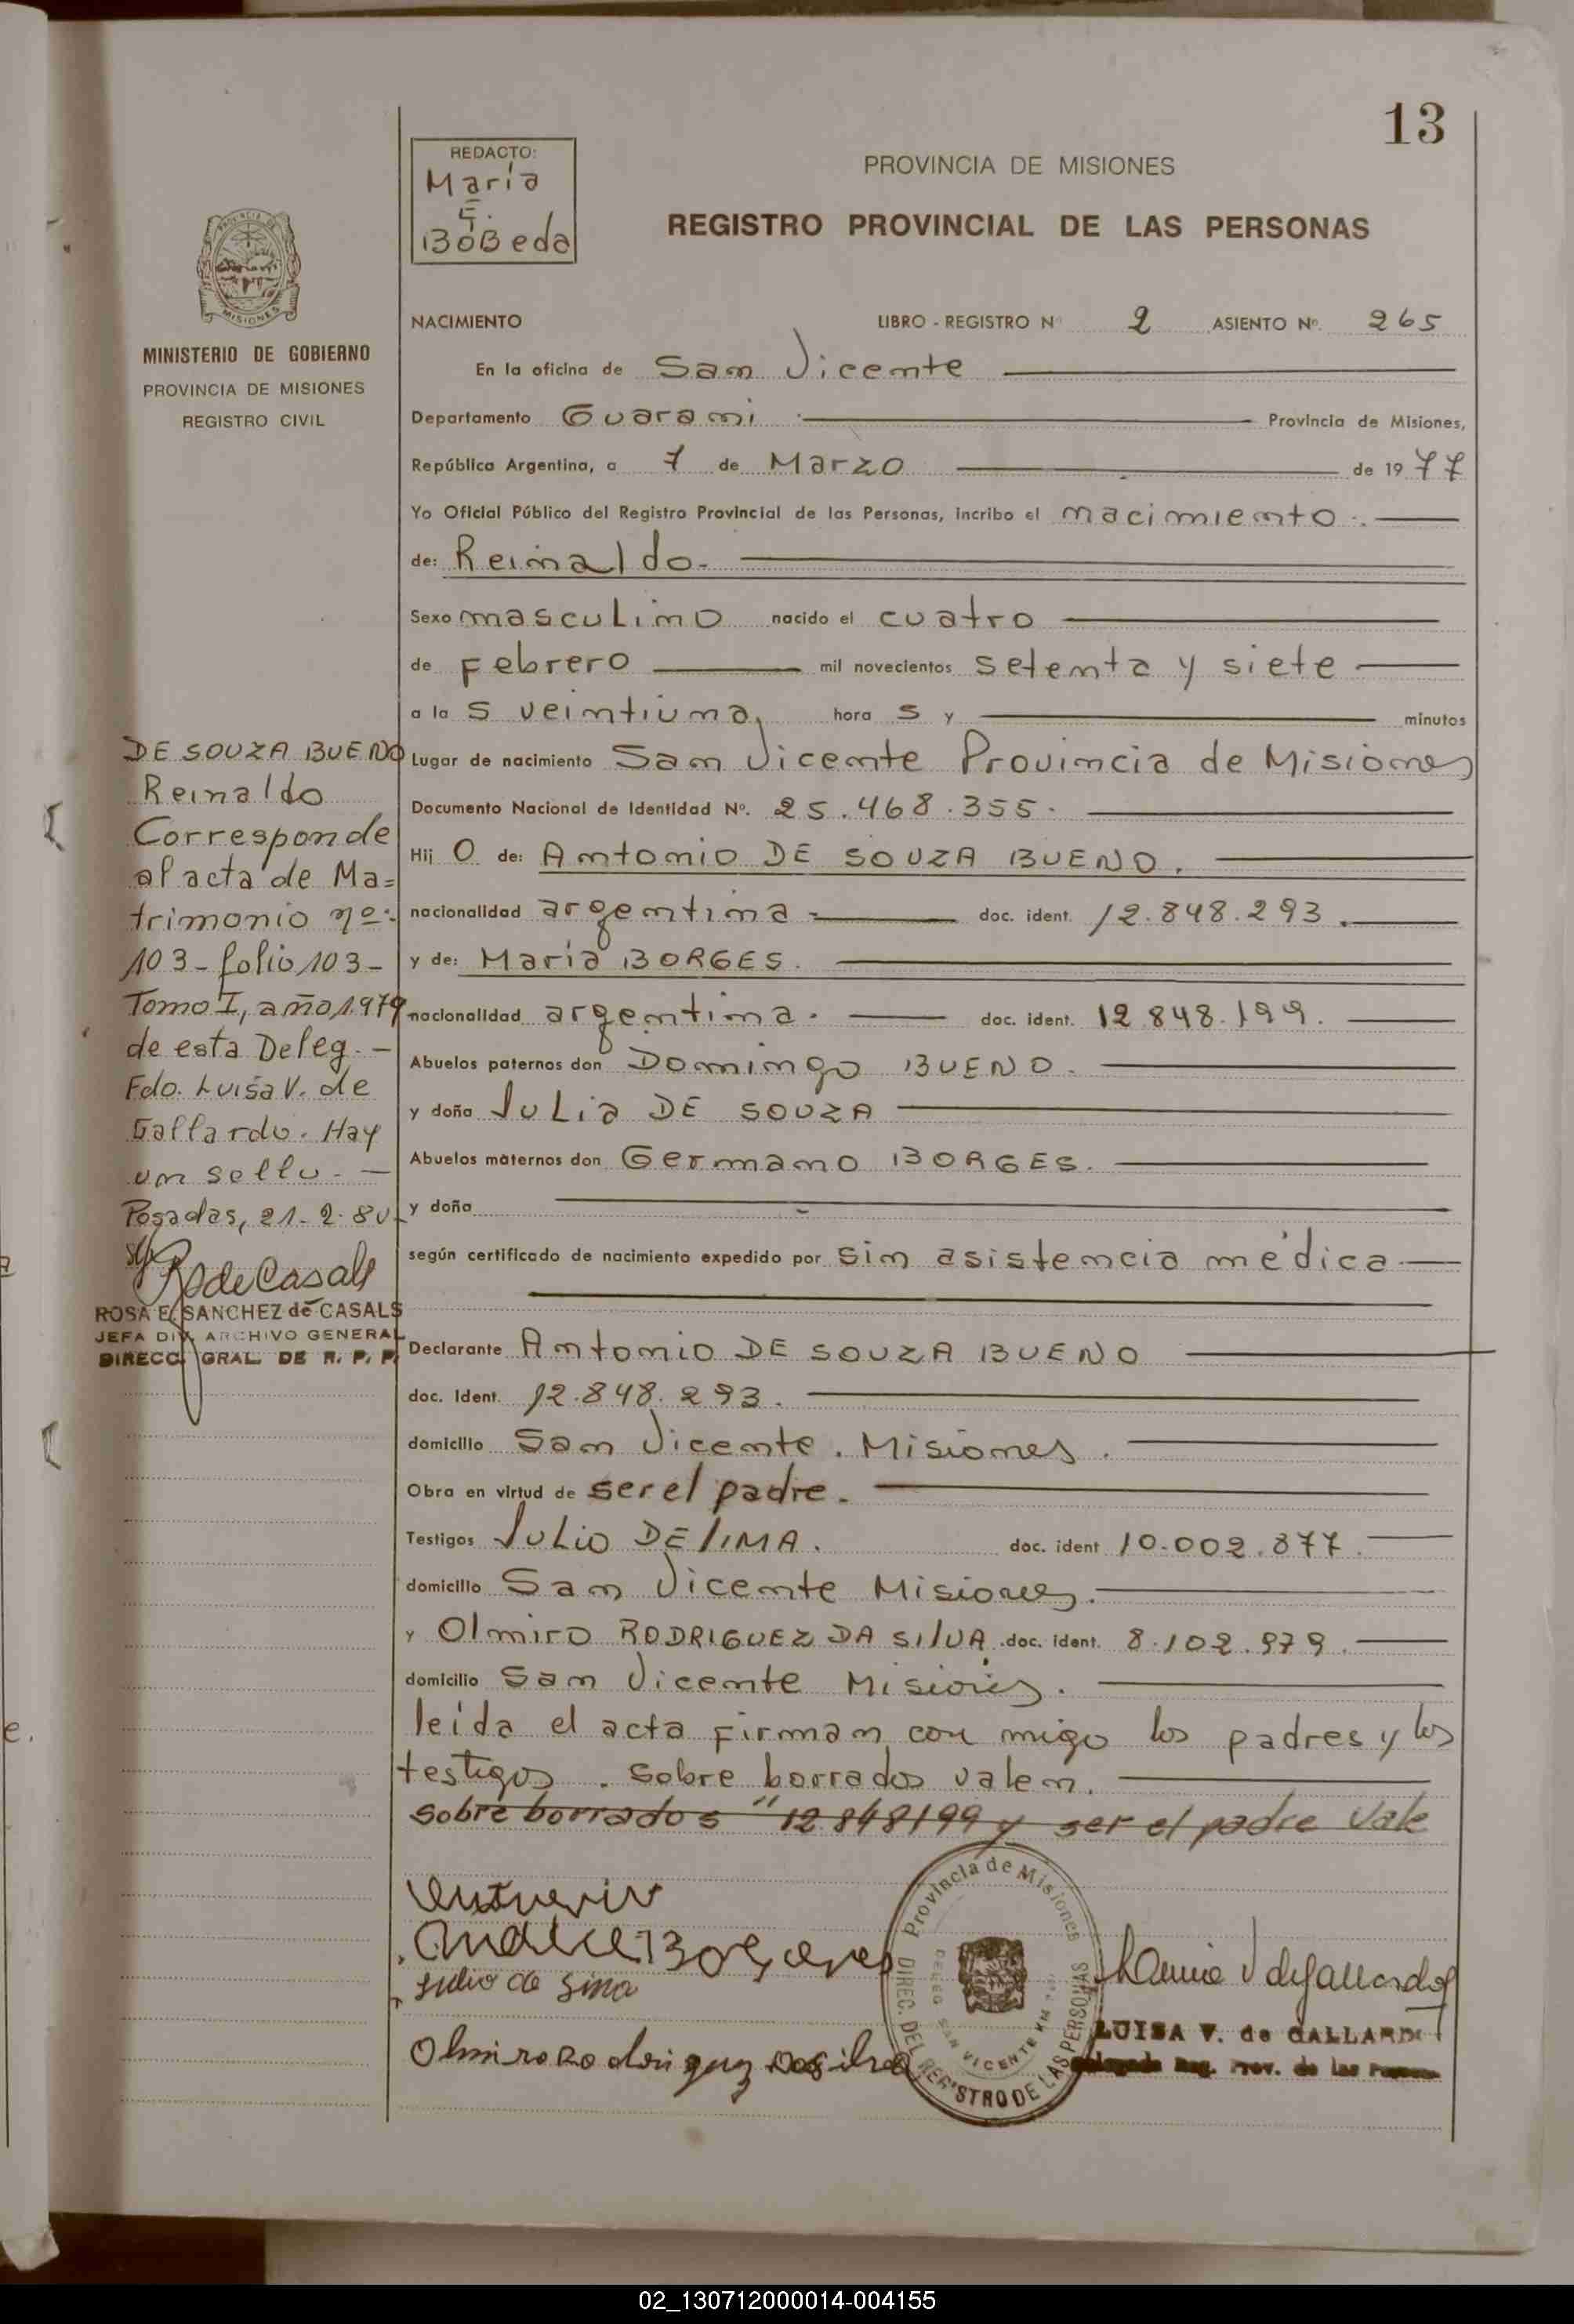 13
REDACTO:
María
E.
BOBeda
PROVINCIA DE MISIONES
REGISTRO PROVINCIAL DE LAS PERSONAS
MISIONES
MINISTERIO DE GOBIERNO
PROVINCIA DE MISIONES
REGISTRO CIVIL
NACIMIENTO LIBRO - REGISTRO Nº 2 ASIENTO Nº. 265
En la oficina de San Vicente
Departamento Guarani Provincia de Misiones,
República Argentina, a 7 de Marzo de 1977
Yo Oficial Público del Registro Provincial de las Personas, incribo el nacimiento.
de: Reinaldo.
Sexo masculino nacido el cuatro
de Febrero mil novecientos setenta y siete
a la s veintiuna, hora s y minutos
Lugar de nacimiento San Vicente Provincia de Misiones
Documento Nacional de Identidad Nº. 25.468.355.
Hij o de: Antonio DE SOUZA BUENO.
nacionalidad argentina doc. ident. 12.848.293.
y de: María BORGES.
nacionalidad argentina. doc. ident. 12.848.199.
Abuelos paternos don Domingo BUENO.
y doña Julia DE SOUZA
Abuelos maternos don Germano BORGES.
y doña
según certificado de nacimiento expedido por sin asistencia médica
Declarante Antonio DE SOUZA BUENO
doc. Ident. 12.848.293.
domicilio San Vicente. Misiones.
Obra en virtud de ser el padre.
Testigos Julio DE LIMA. doc. ident 10.002.877.
domicilio San Vicente Misiones.
y Olmiro RODRIGUEZ DA SILVA. doc. ident. 8.102.979.
domicilio San Vicente Misiones.
leída el acta firman con migo los padres y los
testigos. sobre borrados valen.
sobre borrados "12848199 y ser el padre Vale
DE SOUZA BUENO
Reinaldo
Corresponde
al acta de Ma=
trimonio nº:
103-folio 103-
Tomo I, año 1.979
de esta Deleg.-
Fdo. Luisa V. de
Gallardo. Hay
un sello.-
Posadas, 21-2-80
R de Casals
ROSA E. SANCHEZ de CASALS
JEFA DIV. ARCHIVO GENERAL
DIRECC. GRAL. DE R. P. P.
Julio de Lima
Olmiro Rodriguez Dasilva
Provincia de Misiones
DIREC. DEL REGISTRO DE LAS PERSONAS
SAN VICENTE KM
LUISA V. de GALLARDO
Delegada Reg. Prov. de las Personas
02_130712000014-004155